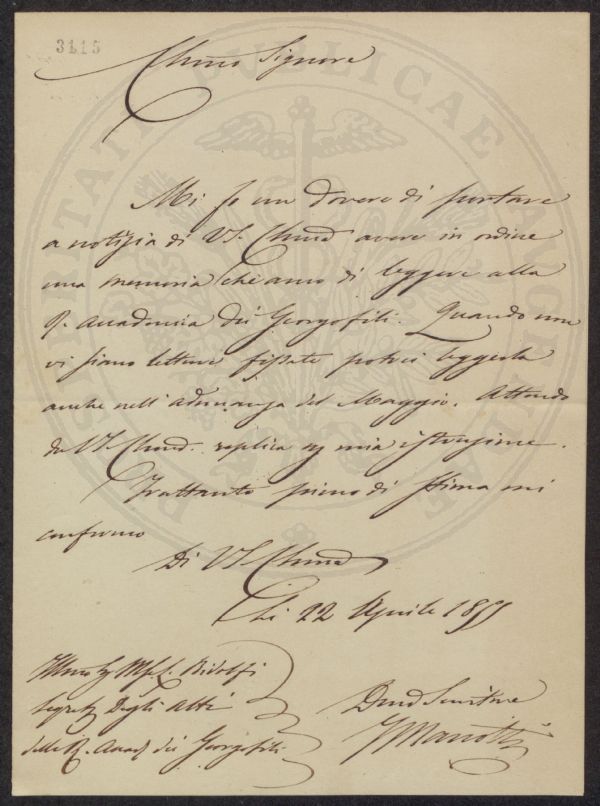 3115
Chmo Signore
Mi fo un dovere di portare
a notizia di VS. Chma avere in ordine
una memoria che amo di leggere alla
R. Accademia dei Georgofili. Quando non
vi siano letture fissate potrei leggerla
anche nell' adunanza del Maggio. Attendo
da VS. Chma. replica a mia istruzione.
Frattanto pieno di stima mi
confermo
Di VS Chma
Li 22 Aprile
Ridolfi
Segret degli Atti
della R. Accad dei Georgofili
Devmo Servitore